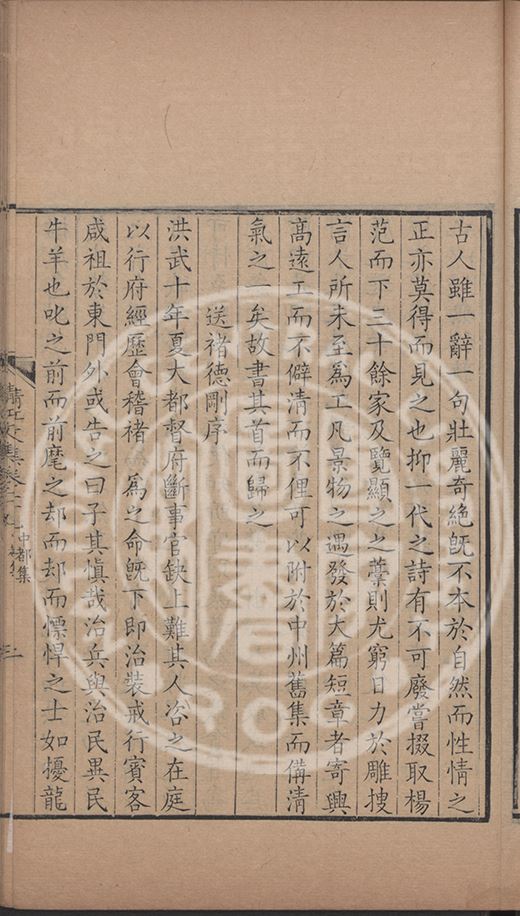 古人雖一辭一句壯麗奇絕旣不本於自然而性情之
正亦莫得而見之也抑一代之詩有不可廢嘗掇取楊
范而下三十餘家及覽顯之之藁則尤窮日力於雕搜
言人所未至爲工凡景物之遇發於大篇短章者寄興
高遠工而不僻清而不俚可以附於中州舊集而備清
氣之一矣故書其首而歸之
送褚德剛序
洪武十年夏大都督府斷事官缺上難其人咨之在庭
以行府經歷會稽褚爲之命旣下即治裝戒行賓客
咸祖於東門外或告之曰子其愼哉治兵與治民異民
牛羊也叱之前而前麾之却而却而慓悍之士如擾龍
清江文集卷十九 中都集
三